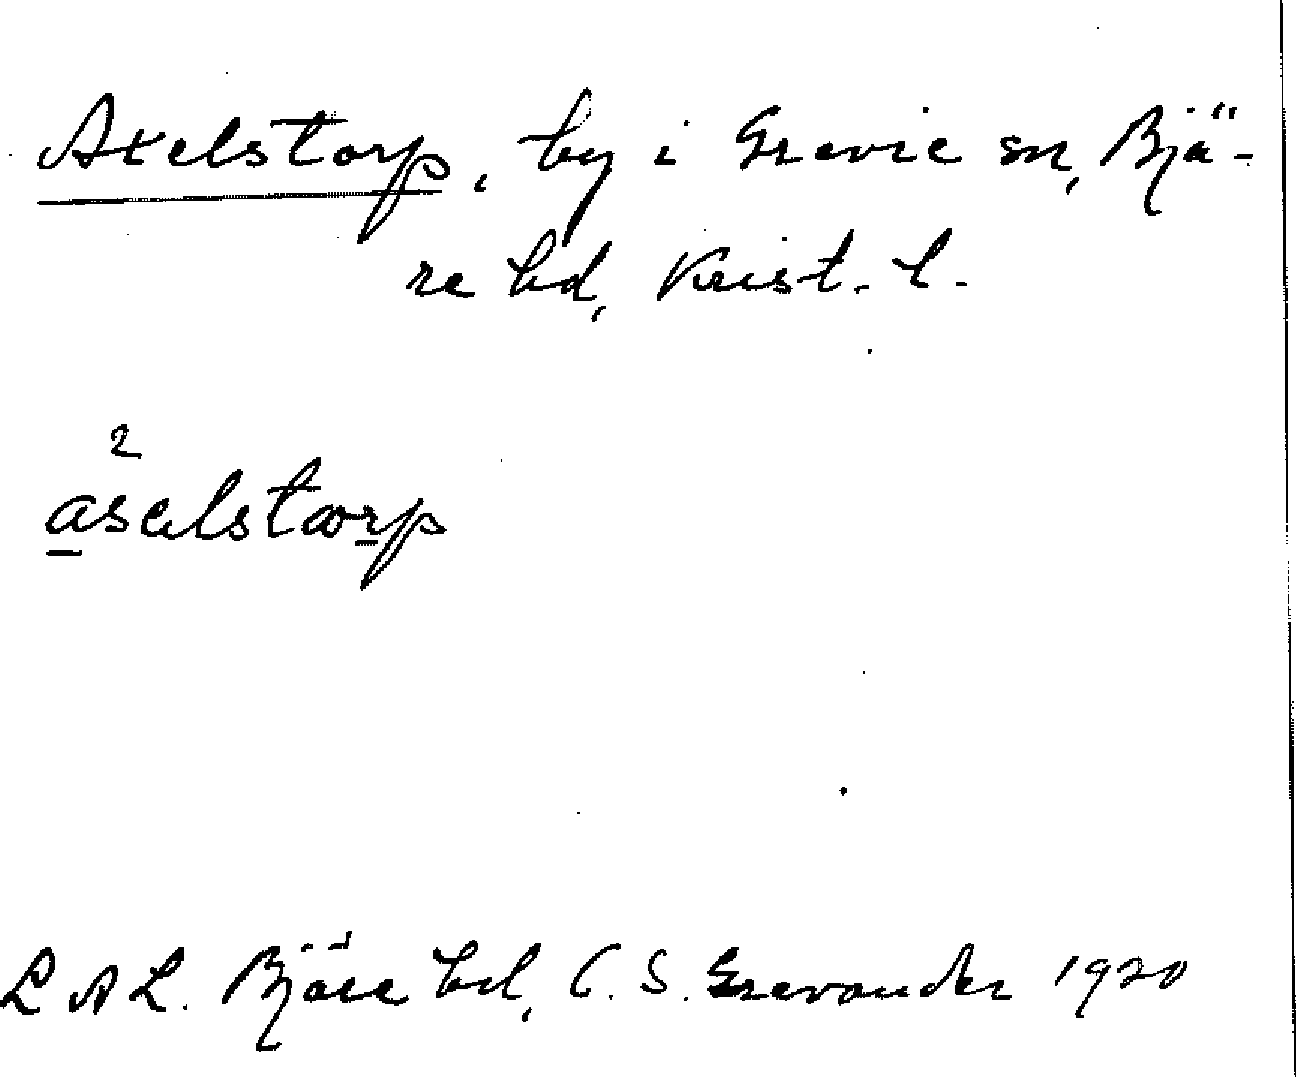 Axelstorp, by i Grevie sn, Bjä-
re hd, Krist. l.
2
aselstorp
L A L. Bjäre hd, C. S. Grevander 1920